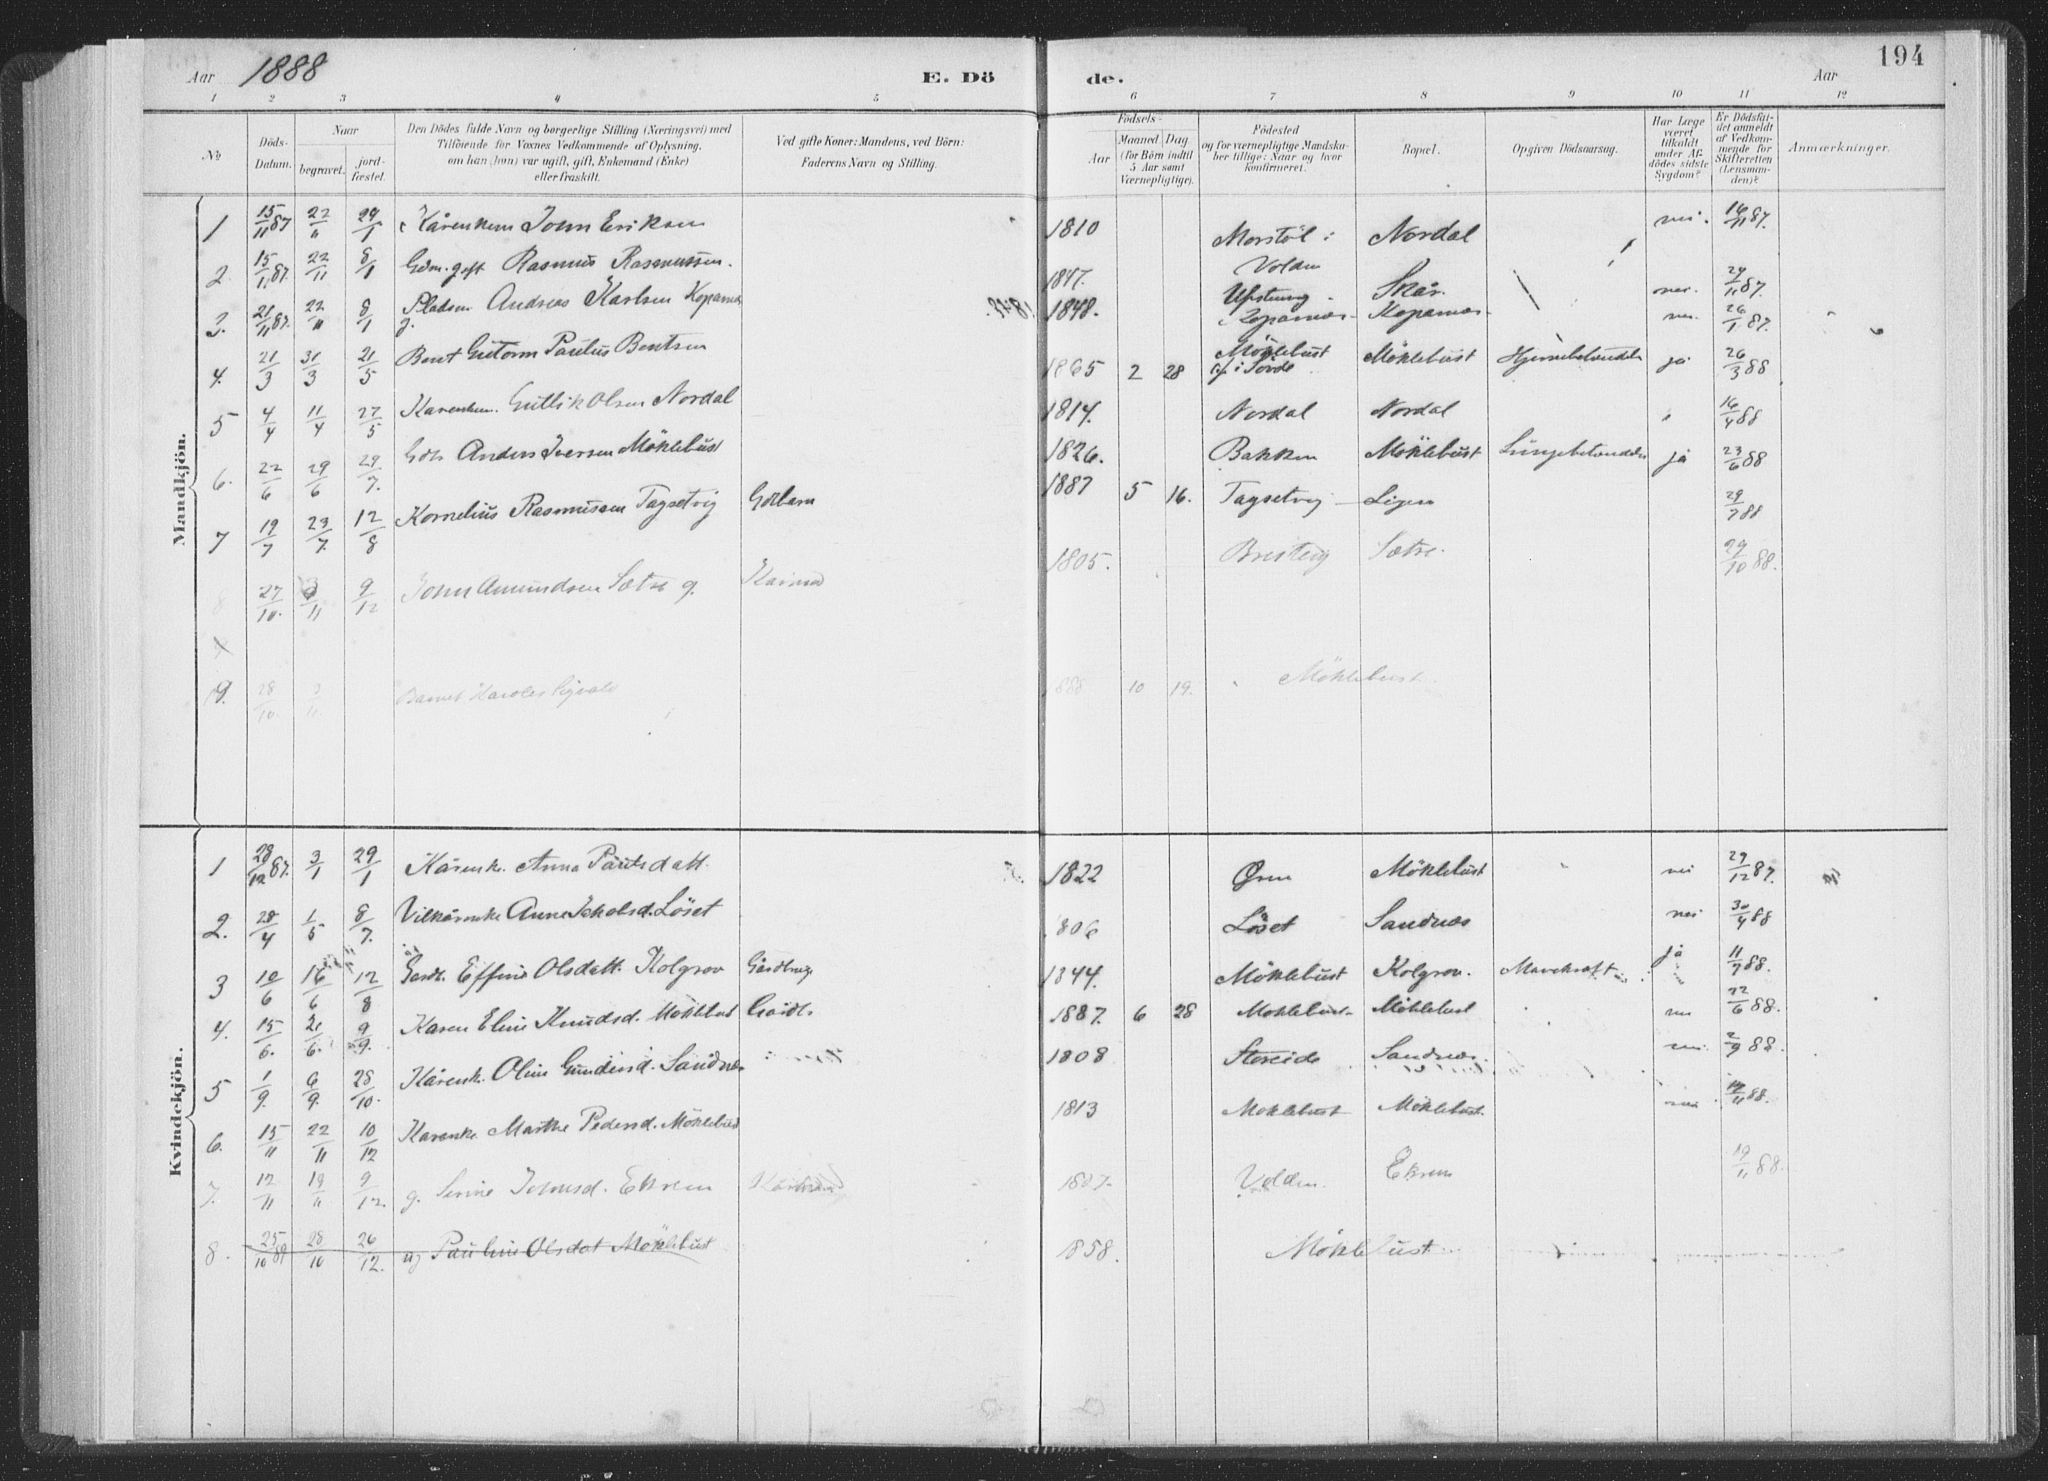 Aar 1888 E. Döde. Aar 194
1 2 3 4 5 6 7 8 9 10 11 12
No.
Döds-Datum.
Naar
begravet.
jordfæstet.
Den Dödes fulde Navn og borgerlige Stilling (Næringsvei) med
Tilföiende for Voxnes Vedkommende af Oplysning,
om han (hun) var ugift, gift, Enkemand (Enke)
eller fraskilt.
Ved gifte Koner: Mandens, ved Börn:
Faderens Navn og Stilling.
Födsels-
Aar
Maaned Dag
(for Börn indtil
5 Aar samt
Værnepligtige).
Födested
og for værnepligtige Mandskaber tillige: Naar og hvor
konfirmeret.
Bopæl.
Opgiven Dödsaarsag.
Har Læge
været
tilkaldt
under Afdödes sidste
Sygdom?
Er Dödsfaldet anmeldt
af Vedkommende for
Skifteretten
(Lensmanden)?
Anmærkninger.
Mandkjön.
1 15/11 87 22/11 29/1 Kårenkem John Eriksen 1810 Morstöl i Volden Nordal nei. 16/11 87.
2. 15/11 87. 22/11 8/1 Gdm. gift Rasmus Rasmussen. 1847. Skår. nei. 29/11 87.
3. 21/11 87. 22/11 8/1 Pladsm Andreas Karlsen Kopernæs g. 1848. Kopernæs Kopernæs nei 26/1 87.
4. 21/3 31/3 21/5 Bent Guttorm Paulus Bentsen 1865 2 28 Möklebust i Jörde Möklebust Hjernebetændelse ja 26/3 88
5 4/4 11/4 27/5 Karenkem. Gullik Olsen Nordal 1814. Nordal Nordal 16/4 88
6. 22/6 29/6 29/7. Gdb Anders Iversen Möklebust 1826. Bakken Möklebust Lungebetændelse ja 23/6 88
7 19/7 23/7. 12/8 Kornelius Rasmussen Tagsetvig Gdbarn 1887 5 16. Tagsetvig Ligeså 29/7 88
8 27/10. 11 9/12 John Amundsen Sætre g. Kårmand 1805. Breiteig Sætre. 29/10 88.
9. 28/10. 11 Barnet Karoles Sigvald 1888 10 19. Möklebust
Kvindekjön.
1 28/12 87. 3/1 29/1 Kårenke. Anna Paulsdatt. 1822 Øren Möklebust nei 29/12 87.
2. 28/4 1/5 8/7. Vilkårenke Anne Jakobsd. Löset 1806 Löset Sandnæs nei 30/4 88
3 10/6 16/6 12/8 Gardk. Effine Olsdatt. Kolgrov Gårdbruger 1844. Möklebust Kolgrov. ja 11/7 88.
4. 15/6. 21/6. 9/9. Karen Eline Knudsd. Möklebust Gårdb. 1887. 6 28 Moklebust Möklebust nei 22/6 88.
5 1/9. 6/9. 28/10. Kårenk. Oline Gundersd. Sandnæs 1808 Storeide Sandnæs. nei. 2/9 88.
6. 15/11 22/11 10/12 Karenke Marthe Pedersd. Möklebust 1813 Moklebust Möklebust. nei 19/11 88.
7. 12/11 19/11 9/12. g. Serine Johnsd. Ekrem Kårmand 1827. Volden. Ekrem 19/11 88.
8. 25/10 89 28/10 26/12. ug Pauline Olsdat Möklebust 1858. Möklebust